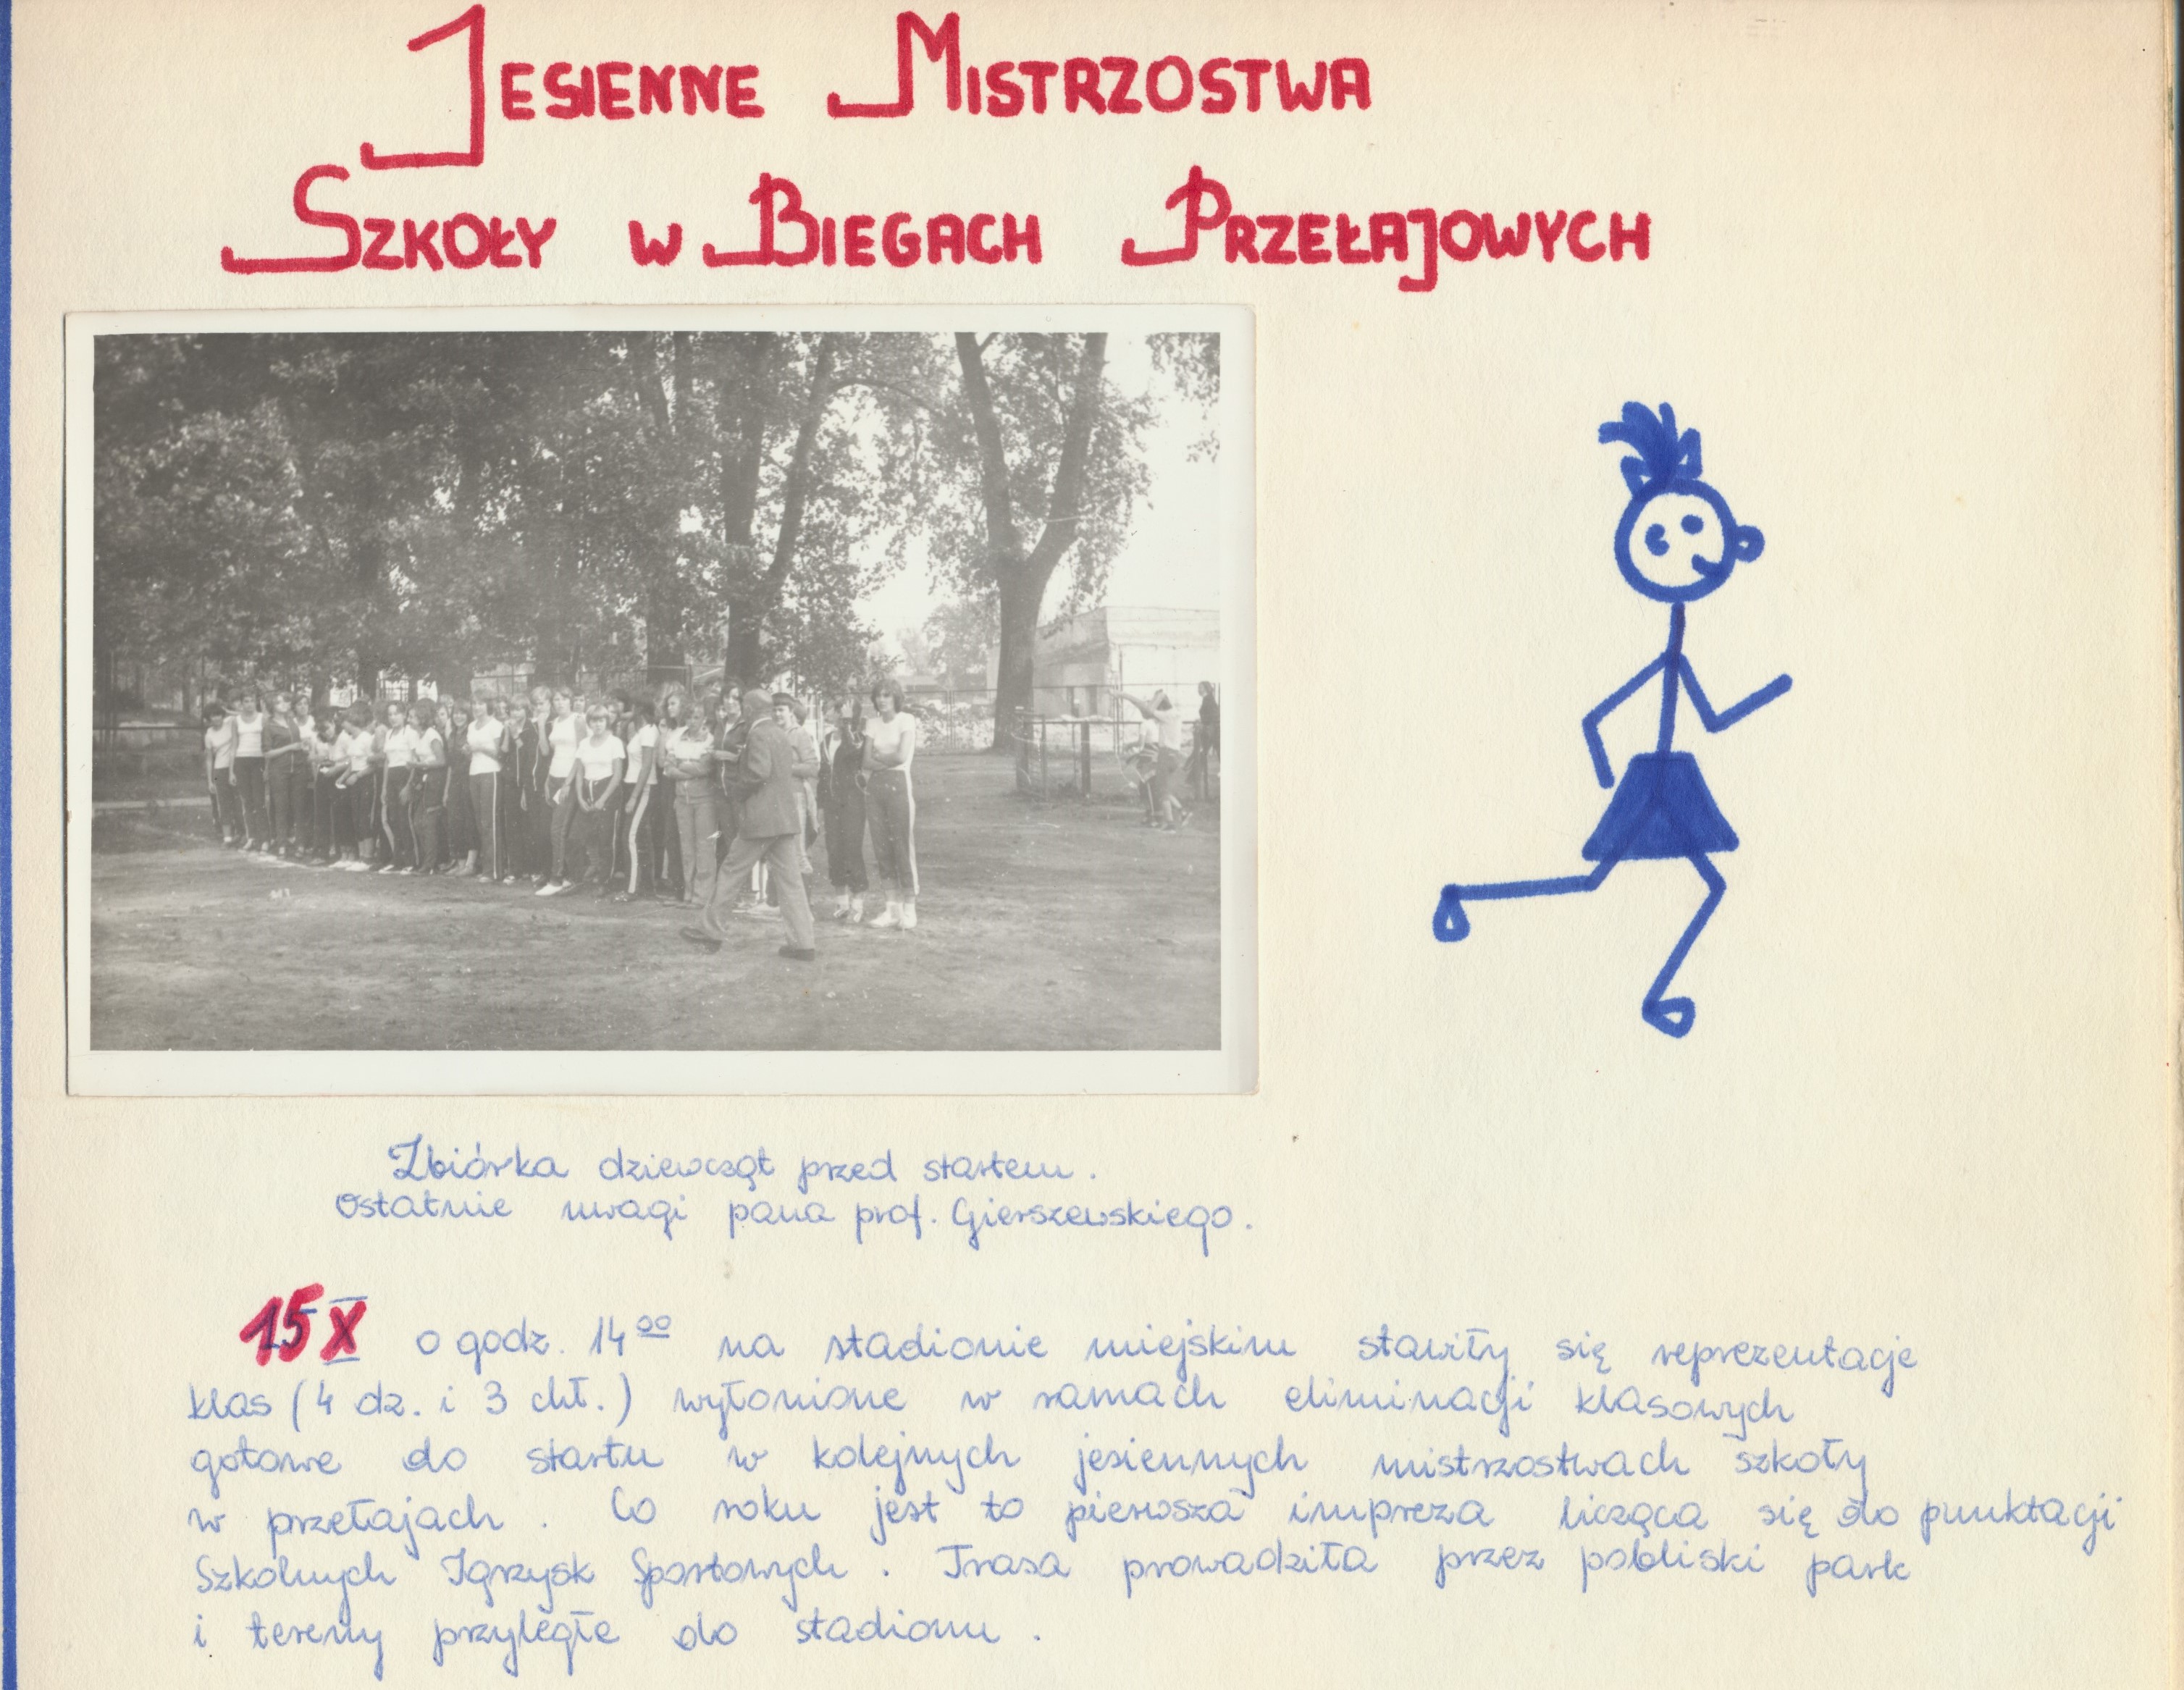 JESIENNE MISTRZOSTWA
SZKOŁY W BIEGACH PRZEŁAJOWYCH
Zbiórka dziewcząt przed startem.
Ostatnie uwagi pana prof. Gierszewskiego.
15 X o godz. 14⁰⁰ na stadionie miejskim stawiły się reprezentacje
klas (4 dz. i 3 chł.) wyłonione w ramach eliminacji klasowych
gotowe do startu w kolejnych jesiennych mistrzostwach szkoły
w przełajach. Co roku jest to pierwsza impreza licząca się do punktacji
Szkolnych Igrzysk Sportowych. Trasa prowadziła przez pobliski park
i tereny przyległe do stadionu.